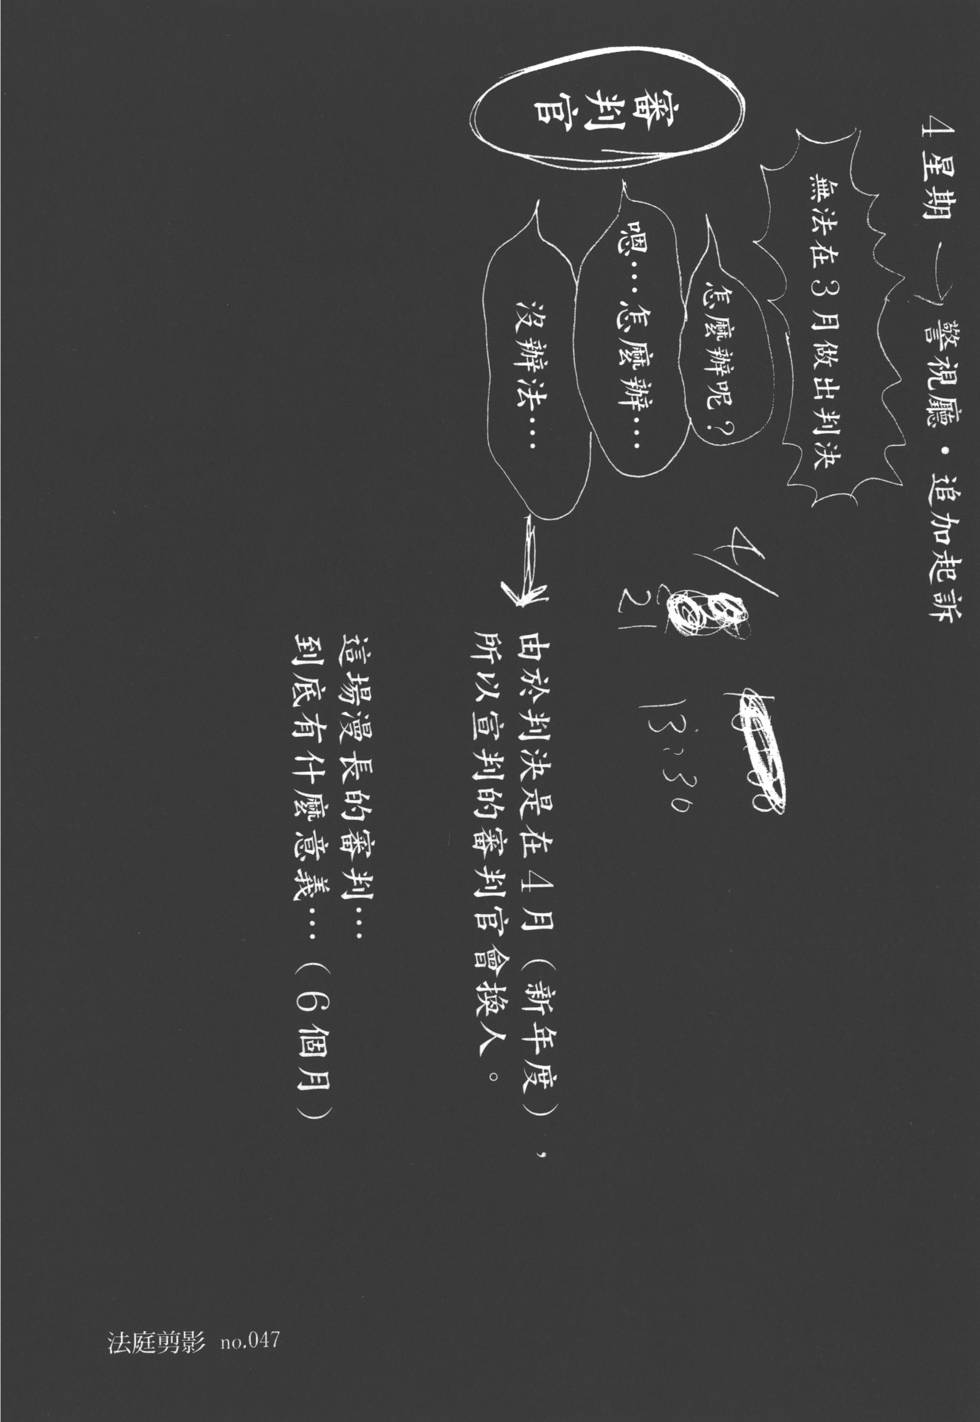 4星期 → 警視廳·追加起訴
無法在3月做出判決
審判官
怎麼辦呢？
嗯…怎麼辦…
沒辦法…
4/
21
13:30
由於判決是在4月（新年度），
所以宣判的審判官會換人。
這場漫長的審判…
到底有什麼意義…（6個月）
法庭剪影 no.047